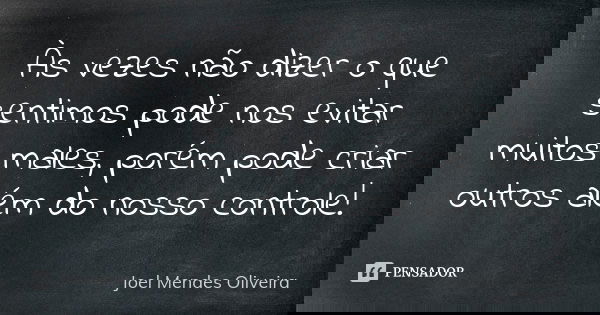 Às vezes não dizer o que
sentimos pode nos evitar
muitos males, porém pode criar
outros além do nosso controle!
Joel Mendes Oliveira
PENSADOR